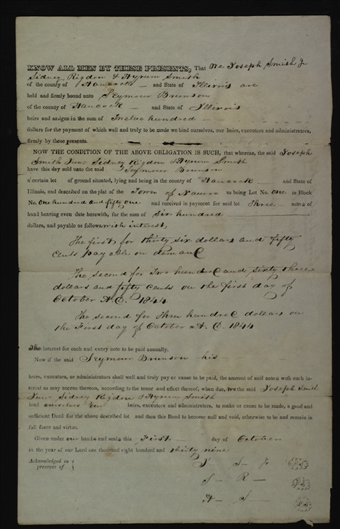 KNOW ALL MEN BY THESE PRESENTS, That We Joseph Smith Jr
Sidney Rigdon & Hyrum Smith
of the county of Hancock and State of Illinois are
held and firmly bound unto Seymour Brunson
of the county of Hancock and State of Illinois
heirs and assigns in the sum of Twelve hundred
dollars for the payment of which well and truly to be made we bind ourselves, our heirs, executors and administrators,
firmly by these presents.
NOW THE CONDITION OF THE ABOVE OBLIGATION IS SUCH, that whereas, the said Joseph
Smith Jun. Sidney Rigdon & Hyrum Smith
have this day sold unto the said Seymour Brunson
a certain lot of ground situated, lying and being in the county of Hancock and State of
Illinois, and described on the plat of the Town of Nauvoo as being Lot No. one in Block
No. One hundred and fifty one and received in payment for said lot three notes of
hand bearing even date herewith, for the sum of Six hundred
dollars, and payable as follows with interest,
The first for thirty six dollars and fifty
cents payable on demand
The second for two hundred and sixty three
dollars and fifty cents on the first day of
October A.D. 1844
The second for three hundred dollars on
the first day of October A.D. 1844
The interest for each and every note to be paid annually.
Now if the said Seymour Brunson his
heirs, executors, or administrators shall well and truly pay or cause to be paid, the amount of said notes with such in-
terest as may accrue thereon, according to the tenor and effect thereof, when due, we the said Joseph Smith
Jun. Sidney Rigdon & Hyrum Smith
bind ourselves our heirs, executors and administrators, to make or cause to be made, a good and
sufficient Deed for the above described lot and then this Bond to become null and void, otherwise to be and remain in
full force and virtue.
Given under our hands and seals this First day of October
in the year of our Lord one thousand eight hundred and thirty nine
Acknowledged in
presence of
J S Jr
S R
H S